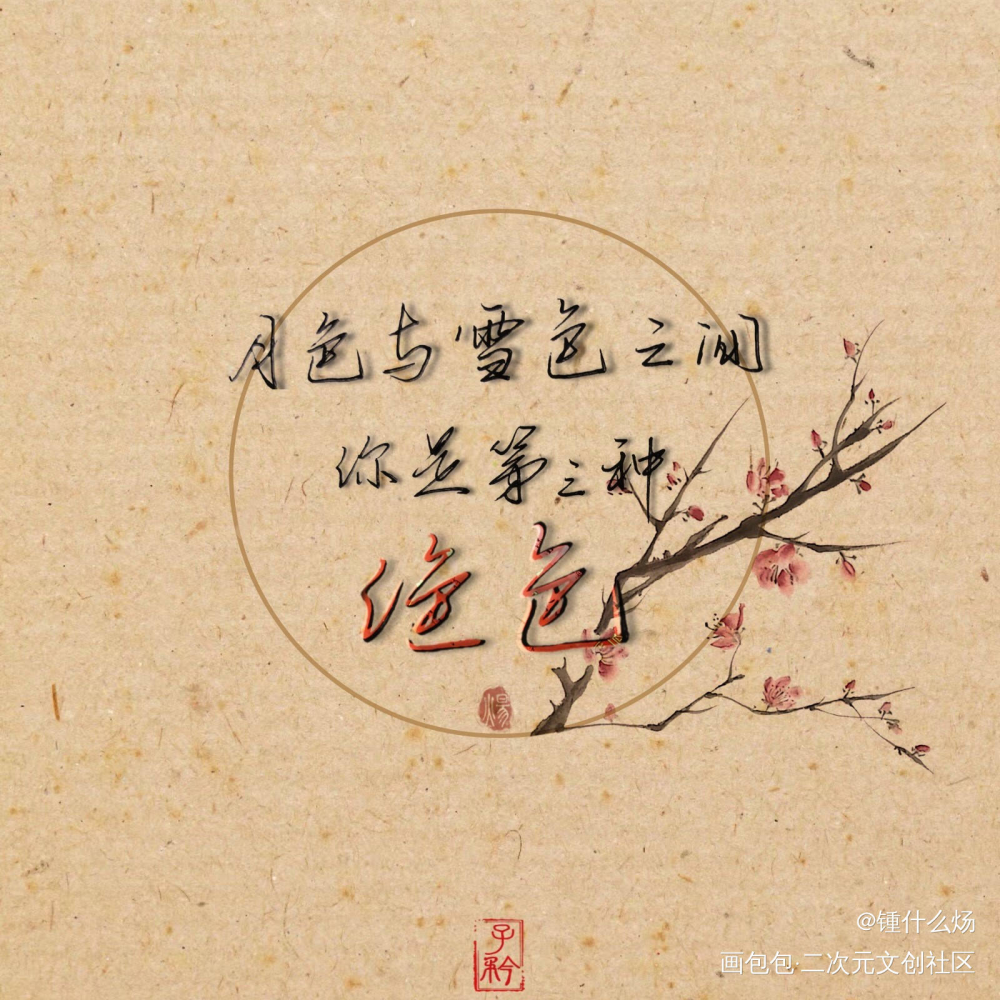 月色与雪色之间
你是第三种
绝色
煬
子衿
@锺什么炀
画包包·二次元文创社区